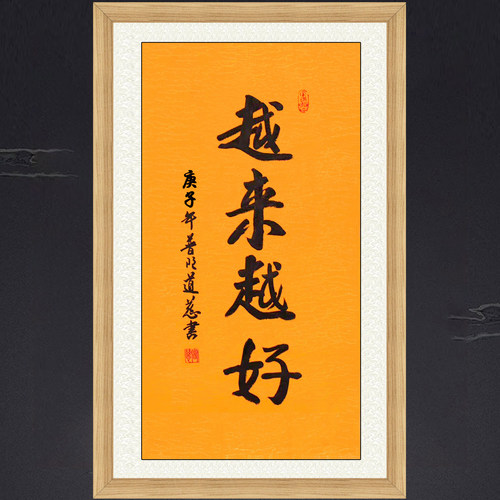 越来越好
庚子年普明道慈书